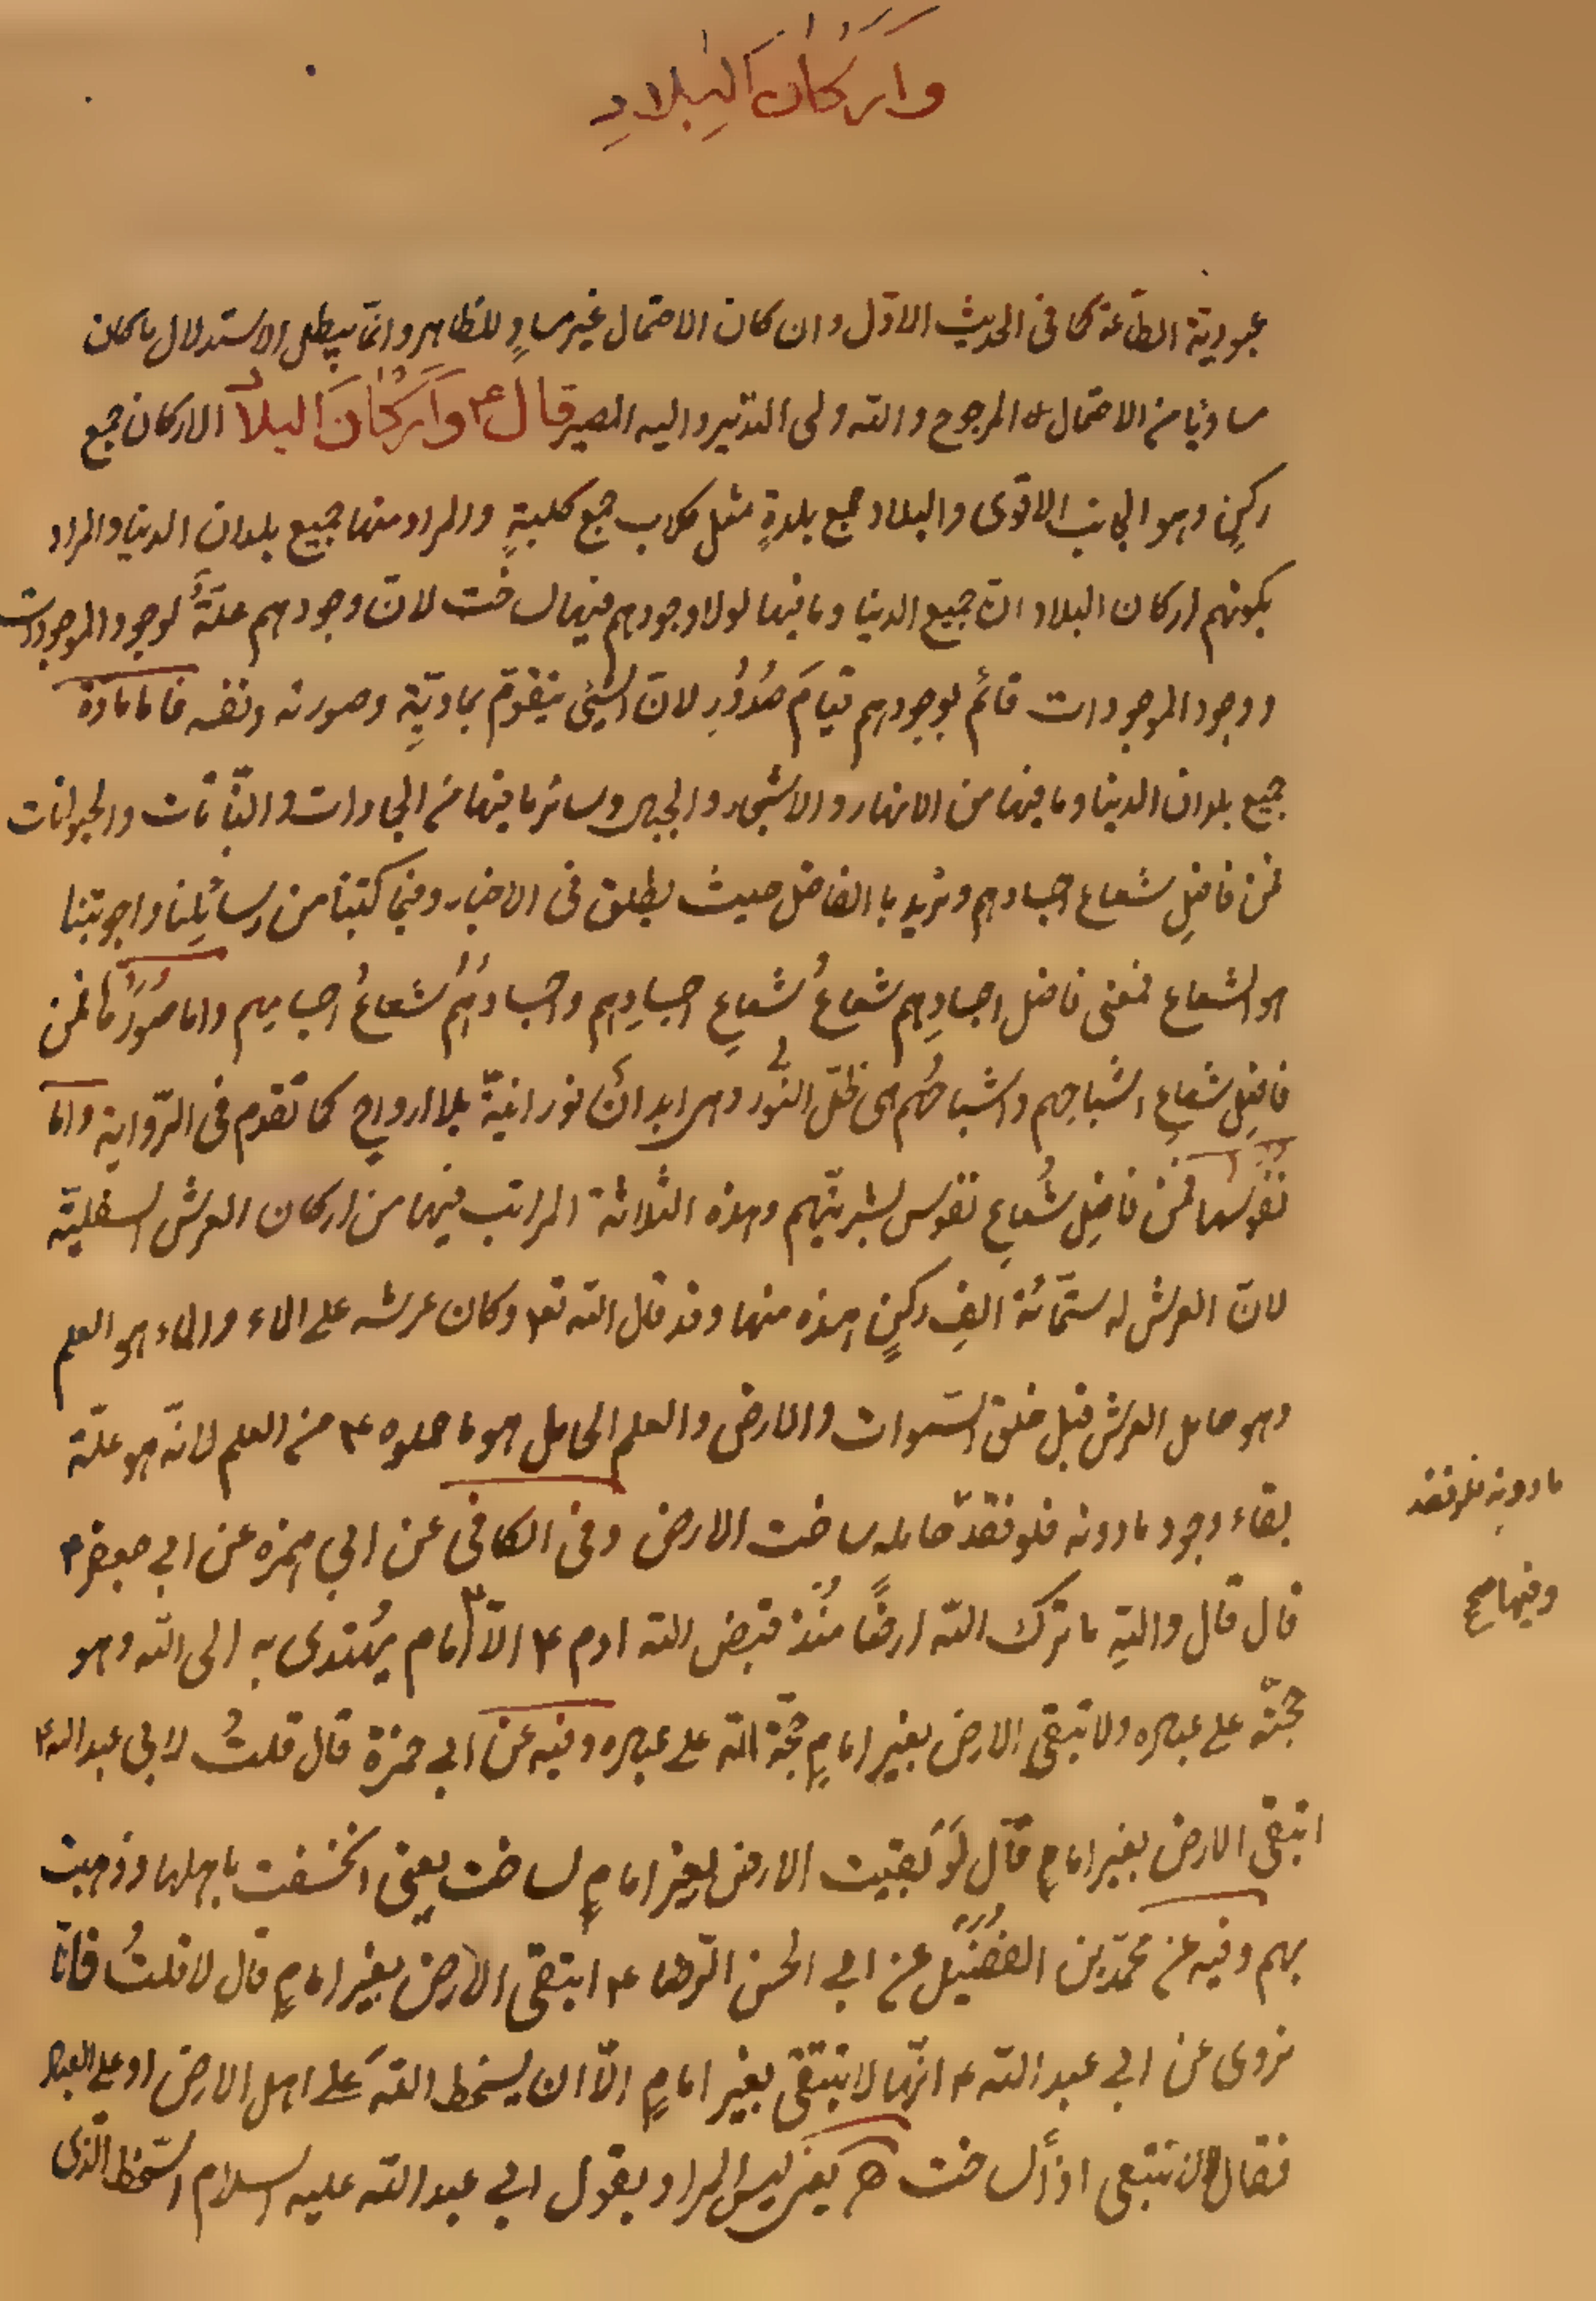 وَاَرْكَانَ الْبِلَادِ
عبودية الطّاعة كما فى الحديث الاوّل وان كان الاحتمال غير مساوٍ للظاهر وانّما يبطل الاستدلال ما كان
مساويًا من الاحتمال لا المرجوح والله ولى التدبير واليه المصير قال ع وَاَرْكَانَ البلاد الاركان جمع
ركنٍ وهو الجانب الاقوى والبلاد جمع بلدةٍ مثل كلاب جمع كلبةٍ والمراد منها جميع بلدان الدنيا والمراد
بكونهم اركان البلاد انّ جميع الدنيا وما فيها لولا وجودهم فيها لساخت لانّ وجودهم علّةٌ لوجود الموجودات
ووجود الموجودات قائم بوجودهم قيامَ صُدُوْرٍ لانّ الشيئ يتقوّم بمادّيّةٍ وصورته ونفسه فاما مادّة
جميع بلدان الدنيا وما فيها من الانهار والاشجار والجبال وسائر ما فيها من الجمادات والنّباتات والحيوانات
فمن فاضل شعاع اجسادهم ونريد باالفاضل حيث يطلق فى الاخبار وفيما كتبنا من رسائلنا واجوبتنا
هو الشعاع فمعنى فاضل اجسادِهم شعاعُ شعاعِ اجسادِهم واجسادُهُم شعاعُ اجسامهم واما صُوَرُها فمن
فاضلِ شعاعِ اشباحِهم واشباحُهم هى ظلّ النُّور وهى ابدانٌ نورانيّة بلا ارواح كما تقدم فى الرّواية واما
نفوسها فمن فاضلِ شُعاعِ نفوس بشريّتهم وهذه الثلاثة المراتب فيها من اركان العرش السفليّة
لانّ العرش له ستّمائة الفِ ركنٍ هذه منها وقد قال الله تع وكان عرشه على الماء والماء هو العلم
وهو حامل العرش قبل خلق السّموات والارض والعلم الحامل هو ما حملوه ع من العلم لانّه هو علّة
بقاء وجود مادونه فلو فقد حامله ساخت الارض وفى الكافى عن ابي حمزه عن ابي جعفر ع
قال قال واللهِ ما ترك الله ارضًا مُنْذُ قبض الله ادم ع الاّ امام يُهتدى به الى الله وهو
حجّته على عباده ولا تبقى الارض بغير امامٍ حجّة الله على عباده وفيه عن ابي حمزة قال قلتُ لابى عبدالله ع
اتبقى الارض بغير امامٍ قال لَوْ بَقيت الارض بغير امامٍ لساخت يعنى انخسفت باهلها وذهبت
بهم وفيه عن محمّد بن الفُضَيْل عن ابي الحسن الرّضا ع اتبقى الارض بغير امامٍ قال لا قلتُ فانّا
نروى عن ابي عبد الله ع انّها لا تبقى بغير امامٍ الاّ ان يسخط الله عَلى اهل الارض او على العباد
فقال لا تبقى اذًا لساخت ه يعنى ليس المراد بقول ابي عبد الله عليه السلام السّخط الّذى
مادونه فلو فقد
وفيها صح